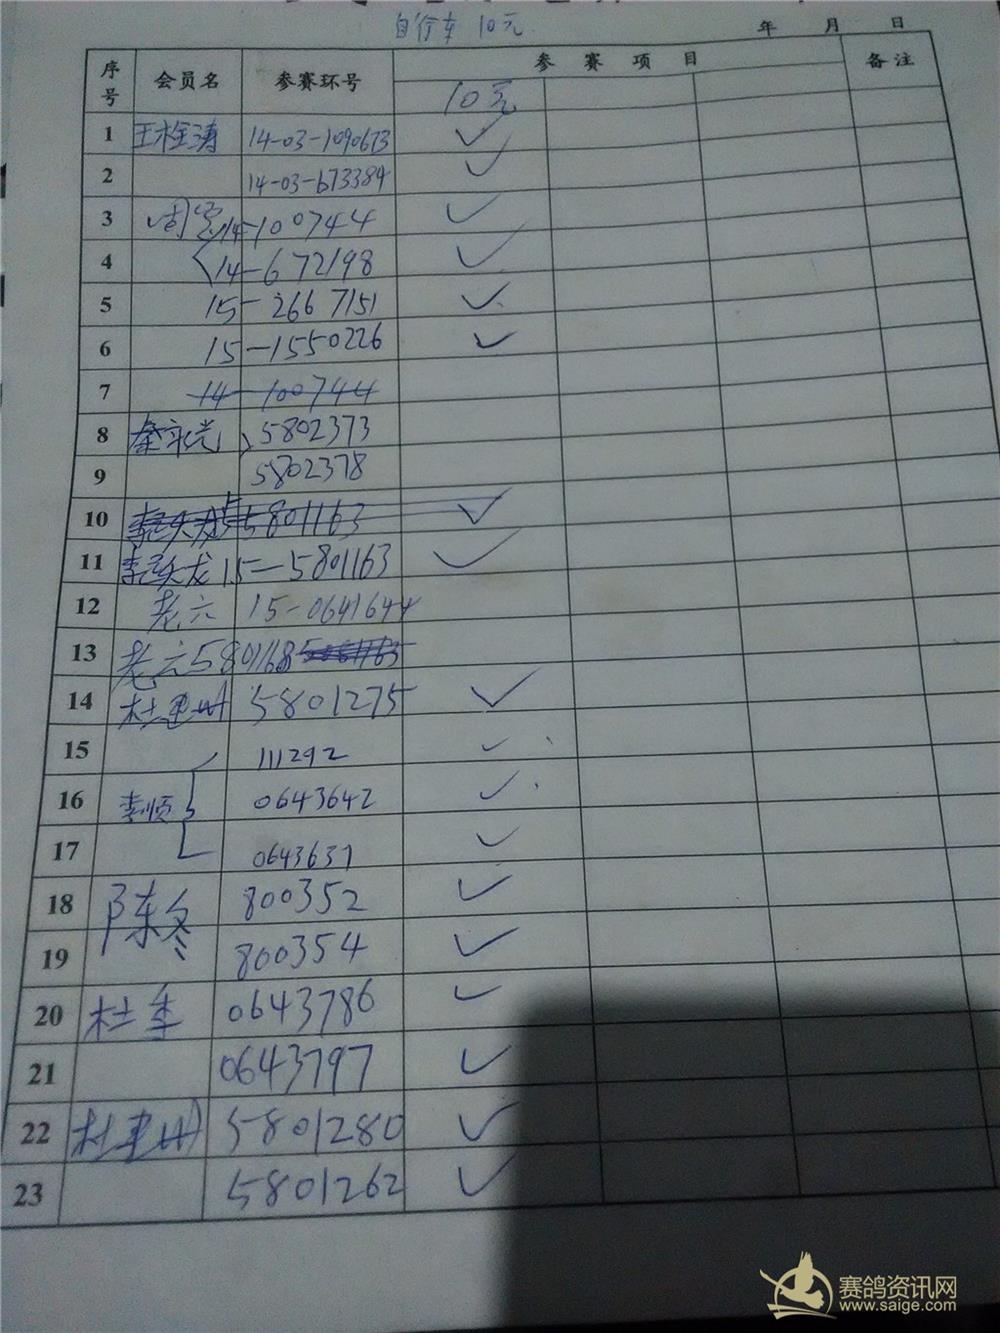 自行车 10元
年 月 日
序号 会员名 参赛环号 参赛项目 备注
10元
1 王栓涛 14-03-1090673 ✓
2 14-03-673384 ✓
3 周宝 14-100744 ✓
4 14-672198 ✓
5 15-2667151 ✓
6 15-1550226 ✓
7 14-100744
8 秦永光 5802373
9 5802378
10 5801163 ✓
11 李跃龙 15-5801163 ✓
12 老六 15-0641644
13 老六 5801168
14 5801275 ✓
15 111292 ✓
16 李顺 0643642 ✓
17 0643631 ✓
18 陈冬 800352 ✓
19 800354 ✓
20 杜季 0643786 ✓
21 0643797 ✓
22 5801280 ✓
23 5801262 ✓
赛鸽资讯网
www.saige.com